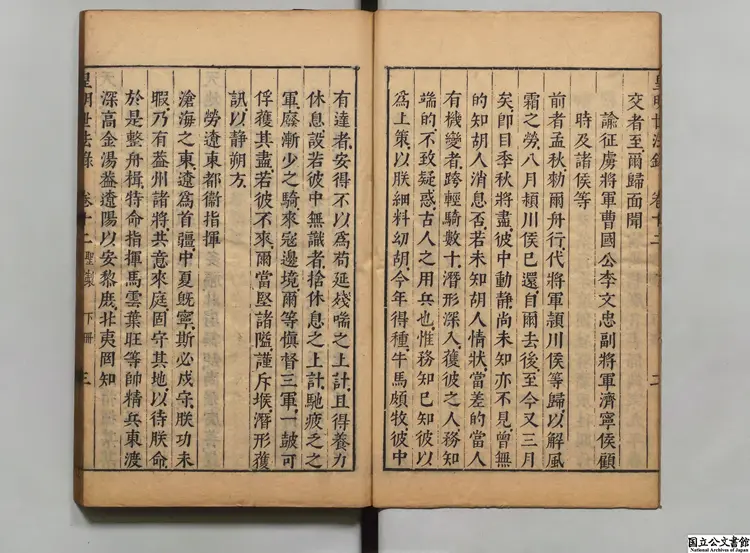 交者至爾歸面聞
諭征虜將軍曹國公李文忠副將軍濟寧侯顧
時及諸侯等
前者孟秋勅爾舟行代將軍潁川侯等歸以解風
霜之勞八月頴川侯已還自爾去後至今又三月
矣卽目季秋將盡彼中動靜尚未知亦不見曾無
的知胡人消息否若未知胡人情狀當差的當人
有機變者跨輕騎數十潛形深入獲彼之人務知
端的不致疑惑古人之用兵也惟務知己知彼以
爲上策以朕細料幼胡今年得種牛馬頗牧彼中
二
有達者安得不以爲苟延殘喘之上計且得養力
休息設若彼中無識者捨休息之上計馳疲乏之
軍廢漸少之騎來寇邊境爾等愼督三軍一鼓可
俘獲其盡若彼不來爾當堅諸隘謹斥堠潛形獲
訊以靜朔方
勞遼東都衛指揮
滄海之東遼爲首疆中夏旣寧斯必戍守朕功未
暇乃有葢州諸將其意來庭固守其地以待朕命
於是整舟楫特命指揮馬雲葉旺等帥精兵東渡
深高金湯葢遼陽以安黎庶北夷罔知
皇明世法錄 卷十二 聖製 下冊 三
国立公文書館
National Archives of Japan